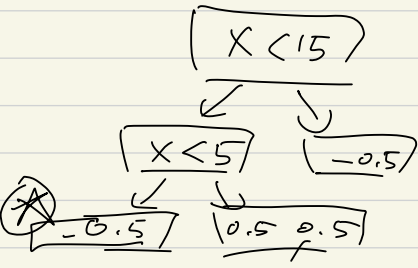 X < 15
X < 5
-0.5
-0.5
0.5 0.5